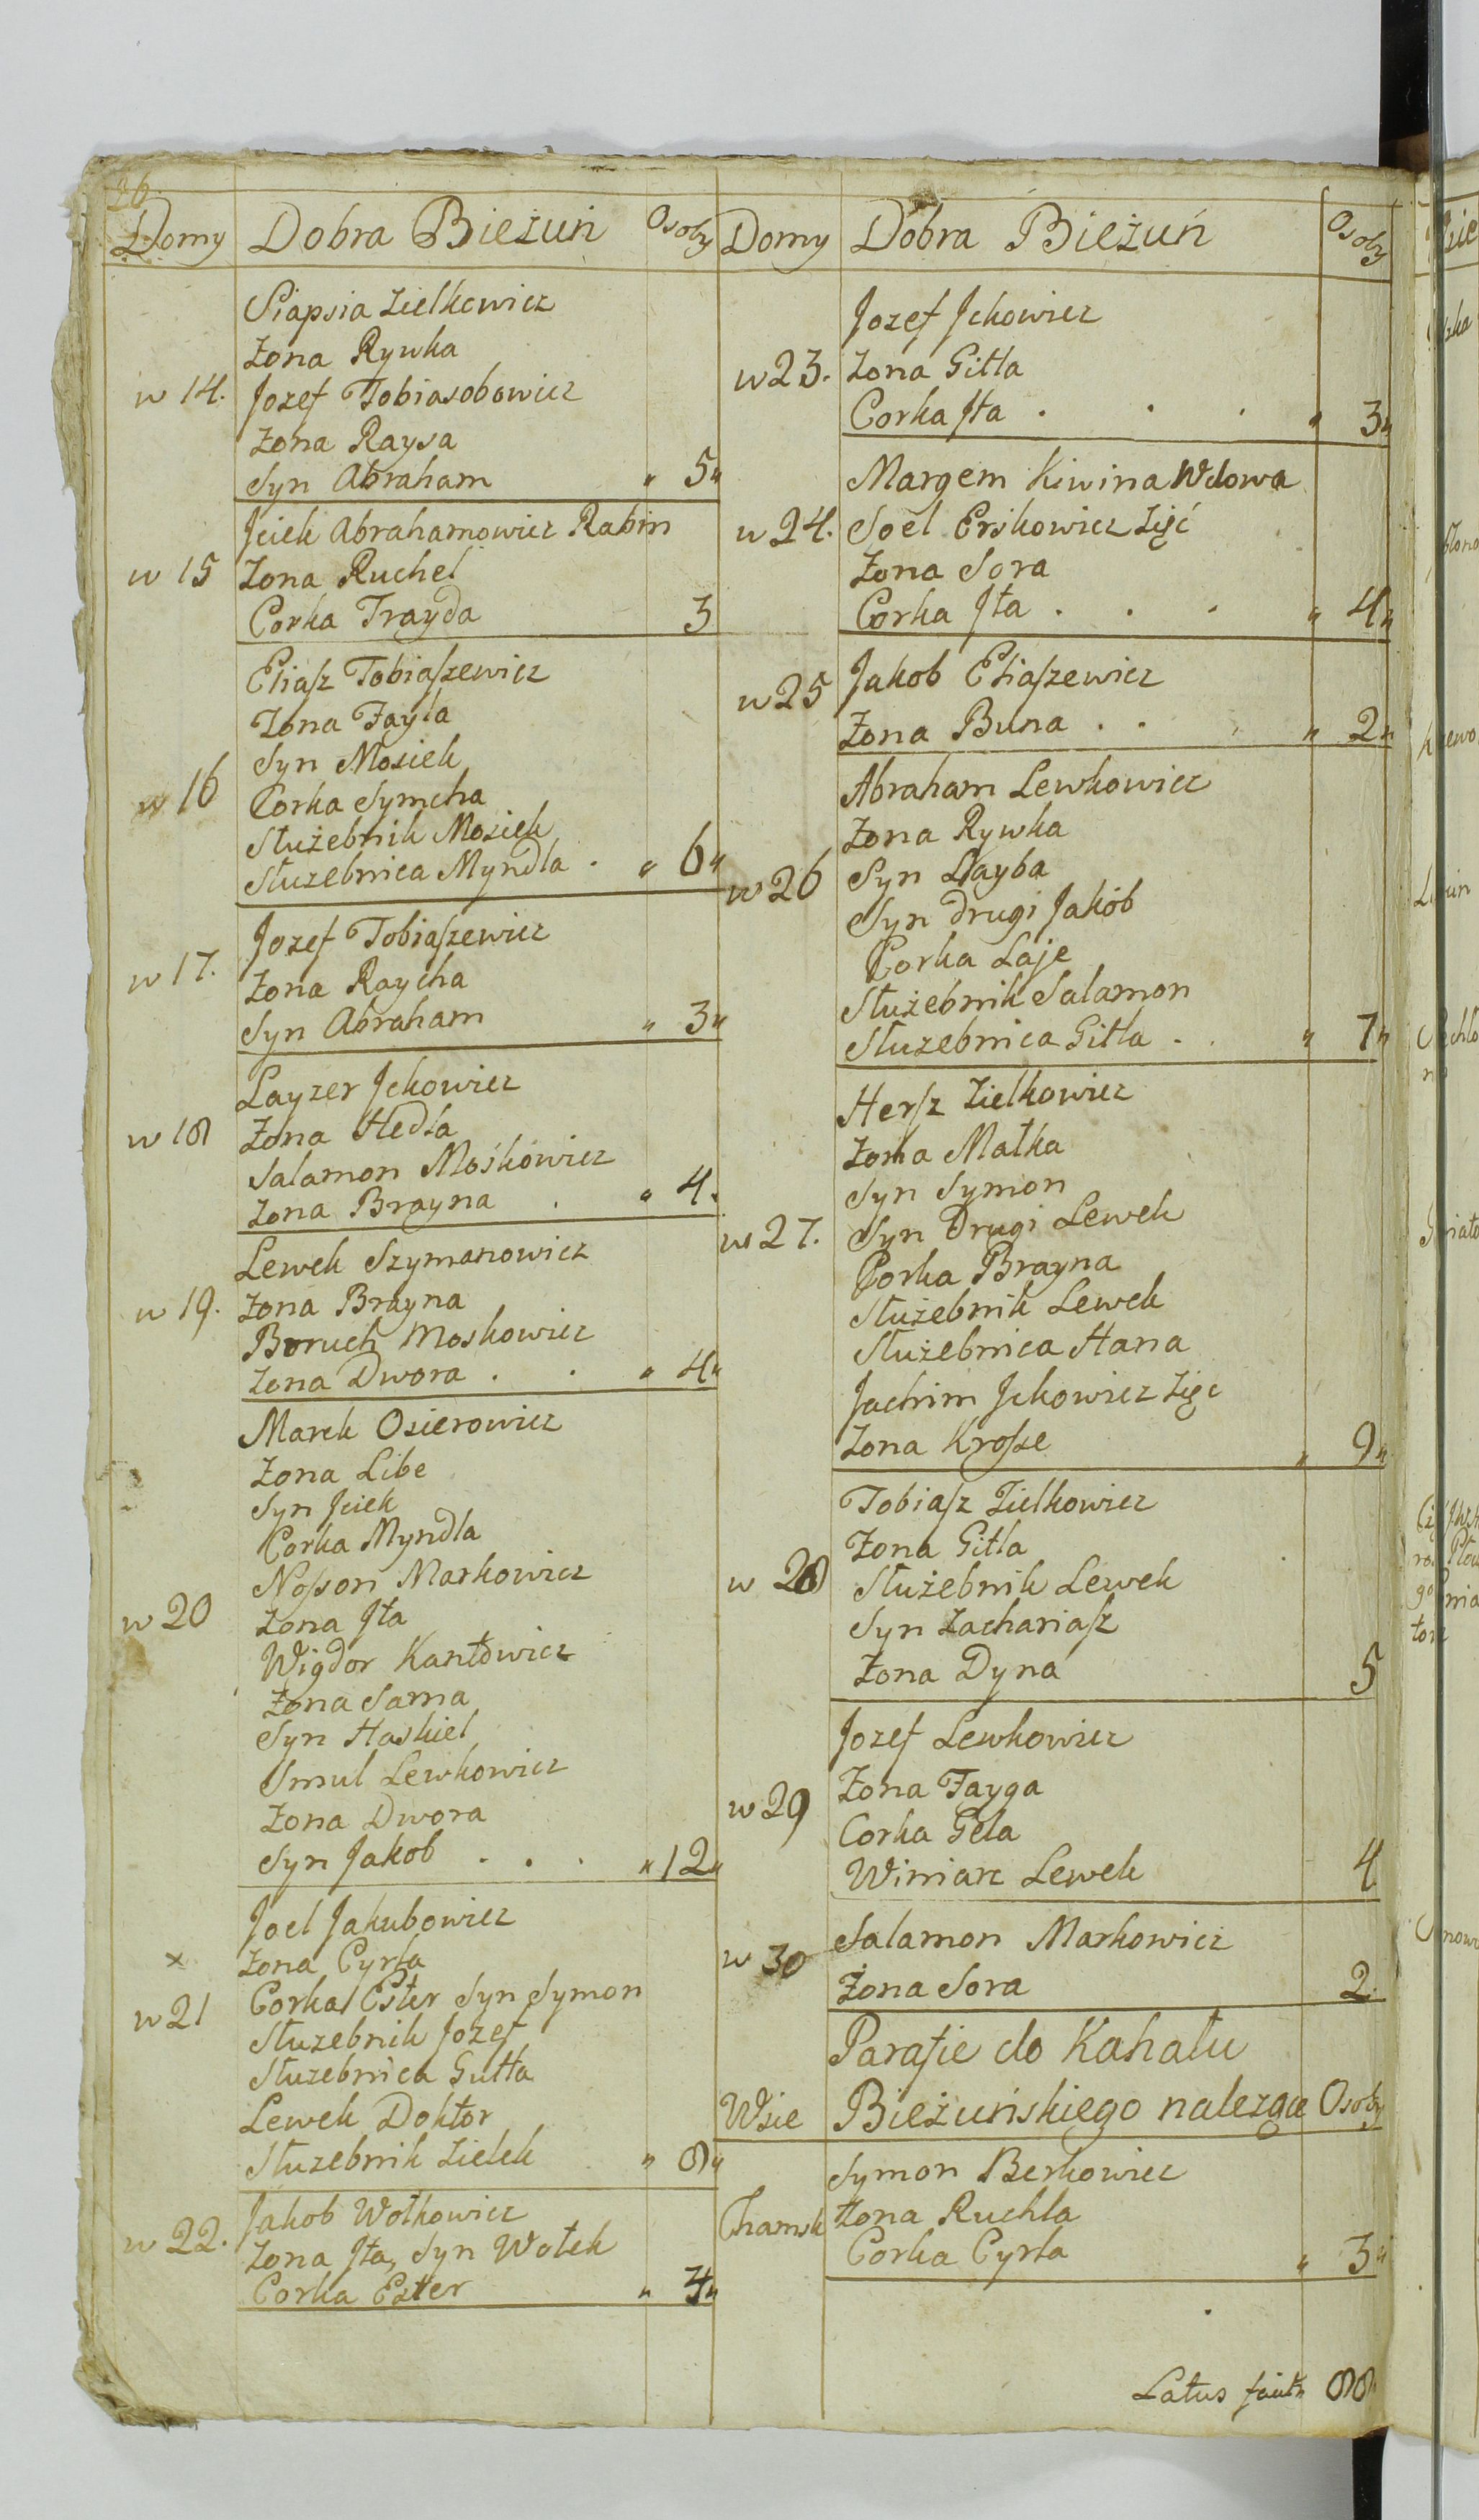 26.
Domy Dobra Bieżuń Osoby
Siapsia Zielkowicz
Żona Rywka
w 14. Jozef Tobiasobowicz
Żona Raysa
Syn Abraham " 5 "
Jciek Abrahamowicz Rabin
w 15 Żona Ruchel
Corka Frayda 3
Eliasz Tobiaszewicz
Żona Fayla
Syn Mosiek
w 16 Corka Symcha
Służebnik Mosiek
Służebnica Myndla . " 6 "
Jozef Tobiaszewicz
w 17. Żona Raycha
Syn Abraham " 3 "
Layzer Jckowicz
w 18 Żona Hedla
Salamon Mośkowicz
Żona Brayna . " 4.
Lewek Szymanowicz
w 19. Żona Brayna
Boruch Moskowicz
Żona Dwora . . " 4 "
Marek Osierowicz
Żona Libe
Syn Jciek
Corka Myndla
Nosson Markowicz
w 20 Żona Jta
Wigdor Kantowicz
Żona Sama
Syn Haskiel
Smul Lewkowicz
Żona Dwora
Syn Jakob . . . " 12 "
Joel Jakubowicz
x Żona Cyrla
w 21 Corka Ester Syn Symon
Służebnik Jozef
Służebnica Gutta
Lewek Doktor
Służebnik Zielek " 8 "
Jakob Wolkowicz
w 22. Żona Jta, Syn Wolek
Corka Ester " 4 "
Domy Dobra Bieżuń Osoby
Jozef Jckowicz
w 23. Żona Gitla
Corka Jta . . . " 3 "
Margem Kiwina Wdowa
w 24. Soel Erskowicz Zięć
Żona Sora
Corka Jta . . . " 4 "
w 25 Jakob Eliaszewicz
Żona Buna . . . " 2 "
Abraham Lewkowicz
Żona Rywka
w 26 Syn Layba
Syn drugi Jakób
Corka Laje
Służebnik Salamon
Służebnica Gitla . . " 7 "
Hersz Zielkowicz
Żona Malka
Syn Symon
w 27. Syn Drugi Lewek
Corka Brayna
Służebnik Lewek
Służebnica Hana
Jachim Jckowicz Zięc
Żona Krosze " 9 "
Tobiasz Zielkowicz
Żona Gitla
w 28 Służebnik Lewek
Syn Zachariasz
Żona Dyna 5
Jozef Lewkowicz
w 29 Żona Fayga
Corka Gela
Winiarz Lewek 4
w 30 Salamon Markowicz
Żona Sora 2.
Parafie do Kahału
Wsie Bieżuńskiego nalezące Osoby
Symon Berkowicz
Chamsk Żona Ruchla
Corka Cyrla " 3 "
Latus facit " 88 "